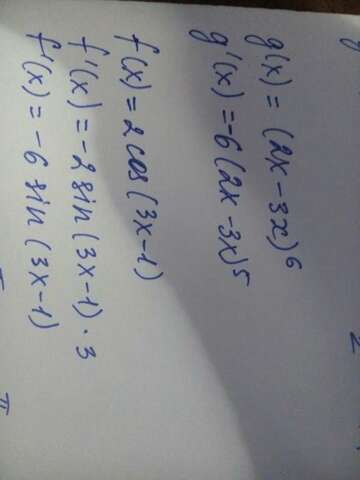 g(x) = (2x - 3x)⁶
g'(x) = -6(2x - 3x)⁵
f(x) = 2cos(3x-1)
f'(x) = -2sin(3x-1)·3
f'(x) = -6sin(3x-1)